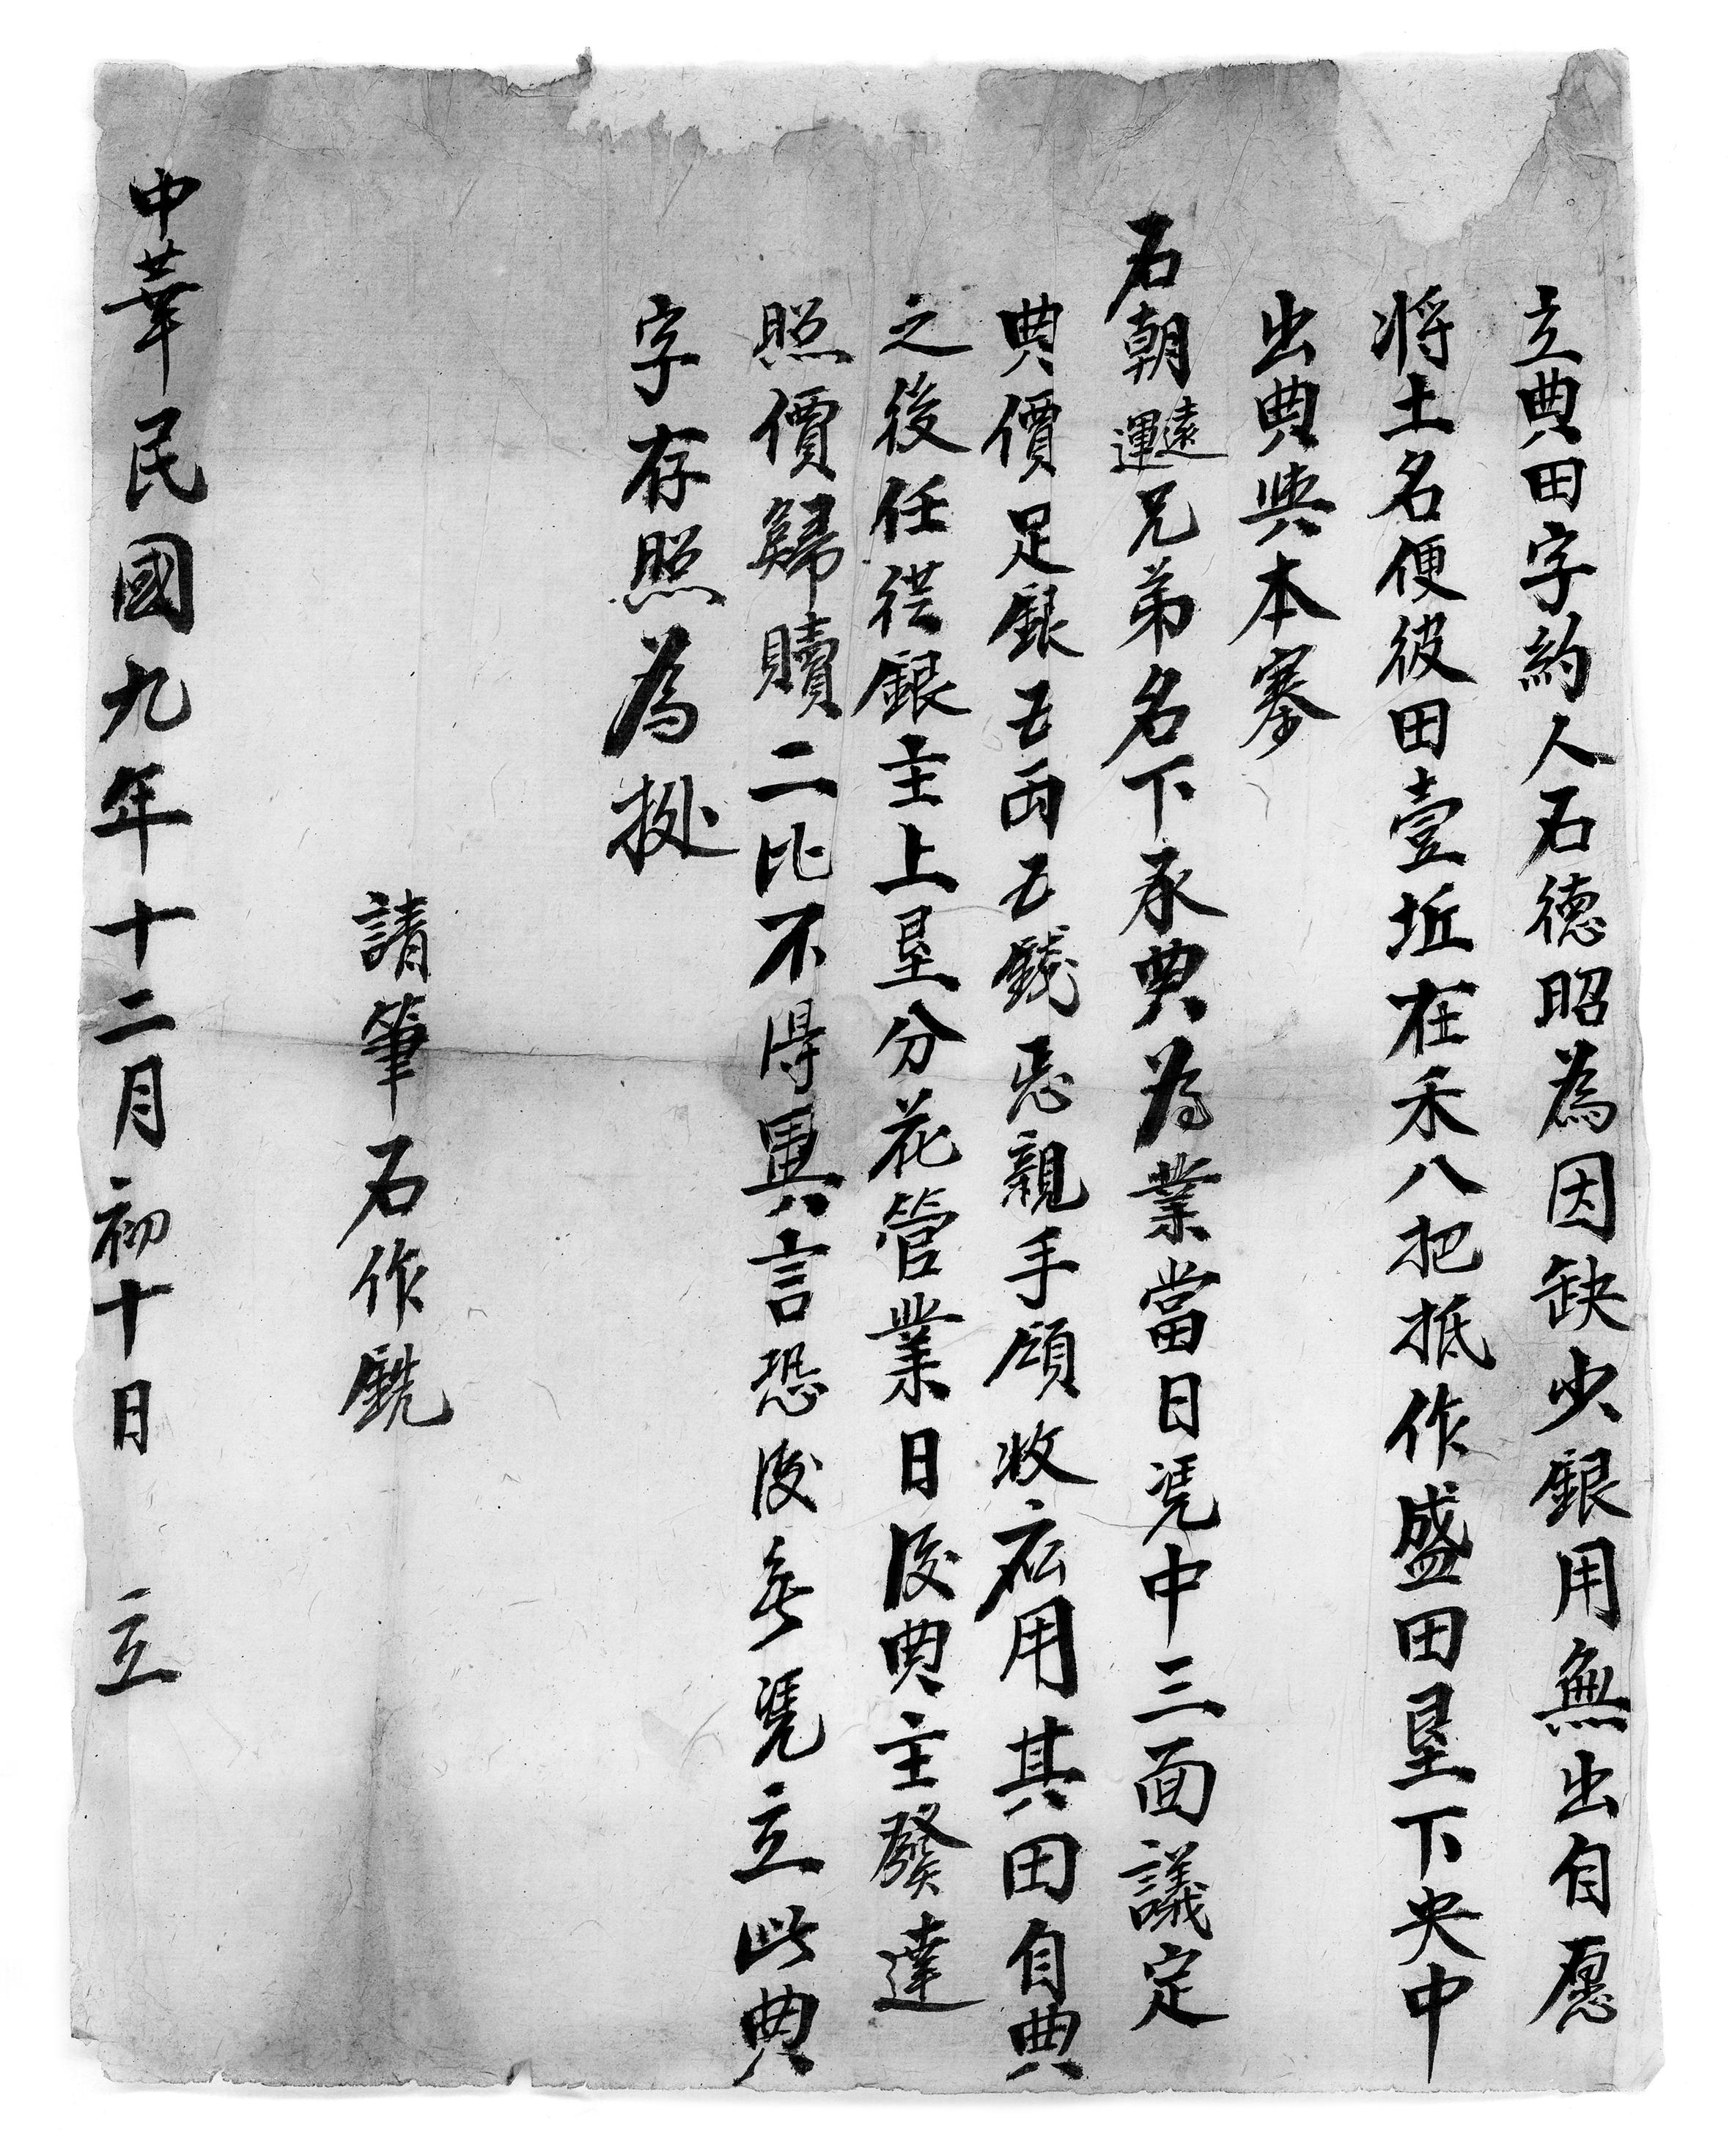 立典田字約人石德昭為因缺少銀用無出自愿
将土名便彼田壹坵在禾八把抵作盛田垦下央中
出典與本寨
石朝遠運兄弟名下承典為業當日凴中三面議定
典價足銀五両五錢㤙親手領收応用其田自典
之後任從銀主上垦分花管業日後典主發達
照價歸贖二比不得異言恐後無凴立此典
字存照為㨿
請筆石作銑
中華民國九年十二月初十日 立